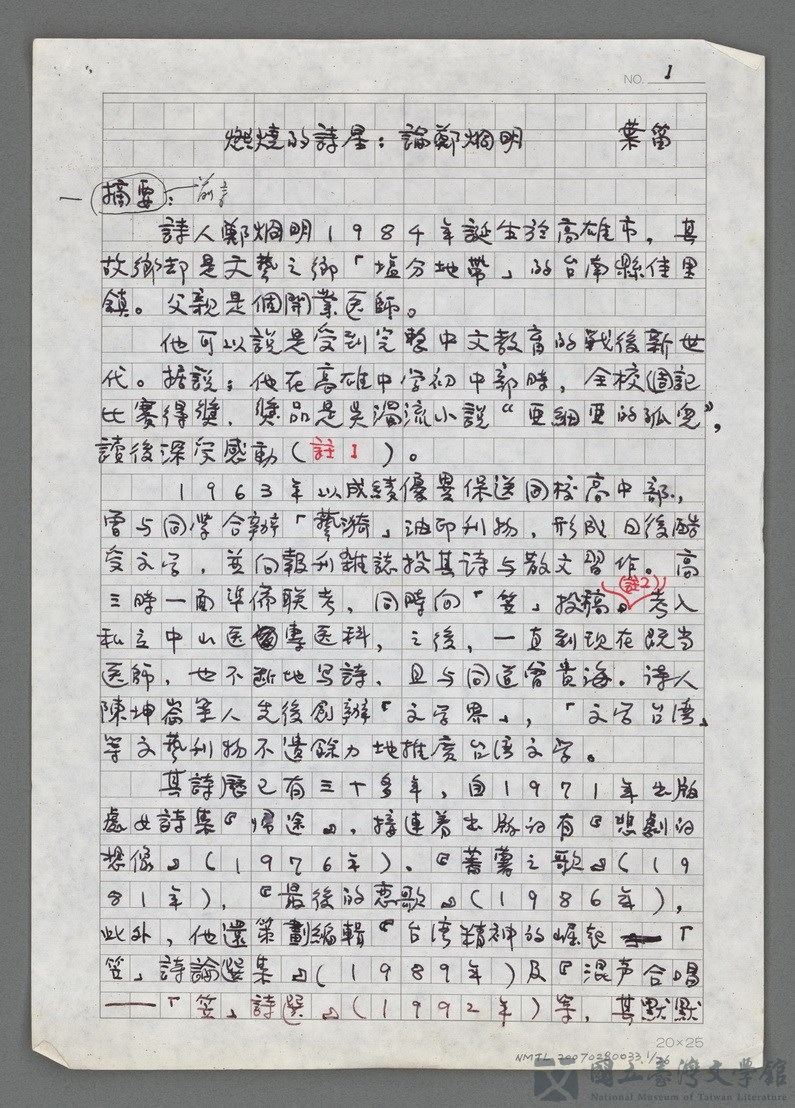 NO. 1
燃燒的詩星：論鄭烱明 葉笛
一 摘要： 前言
詩人鄭烱明1984年誕生於高雄市，其
故鄉却是文藝之鄉「塩分地帶」的台南縣佳里
鎮。父親是個開業医師。
他可以說是受到完整中文教育的戰後新世
代。据說；他在高雄中学初中部時，全校週記
比賽得獎，獎品是吳濁流小說“亞細亞的孤兒”，
讀後深受感動（註1）。
1963年以成績優異保送同校高中部，
曾与同學合辦「藝漪」油印刊物，形成日後酷
愛文学，並向報刊雜誌投其詩与散文習作。高
三時一面準備联考，同時向「笠」投稿。考入
（註2）
私立中山医專医科，之後，一直到現在既当
医師，也不断地写詩，且与同道曾貴海。詩人
陳坤崙等人先後創辦「文学界」，「文学台湾」
等文藝刊物不遺餘力地推廣台湾文学。
其詩歷已有三十多年，自1971年出版
處女詩集『歸途』，接連着出版的有『悲劇的
想像』（1976年）．『蕃薯之歌』（19
81年），『最後的恋歌』（1986年），
此外，他還策劃編輯『台湾精神的崛起 —「
笠」詩論選集』（1989年）及『混声合唱
——「笠」詩選』（1992年）等，其默默
20×25
NMTL 20070280033 1/26
國立臺灣文學館
National Museum of Taiwan Literature